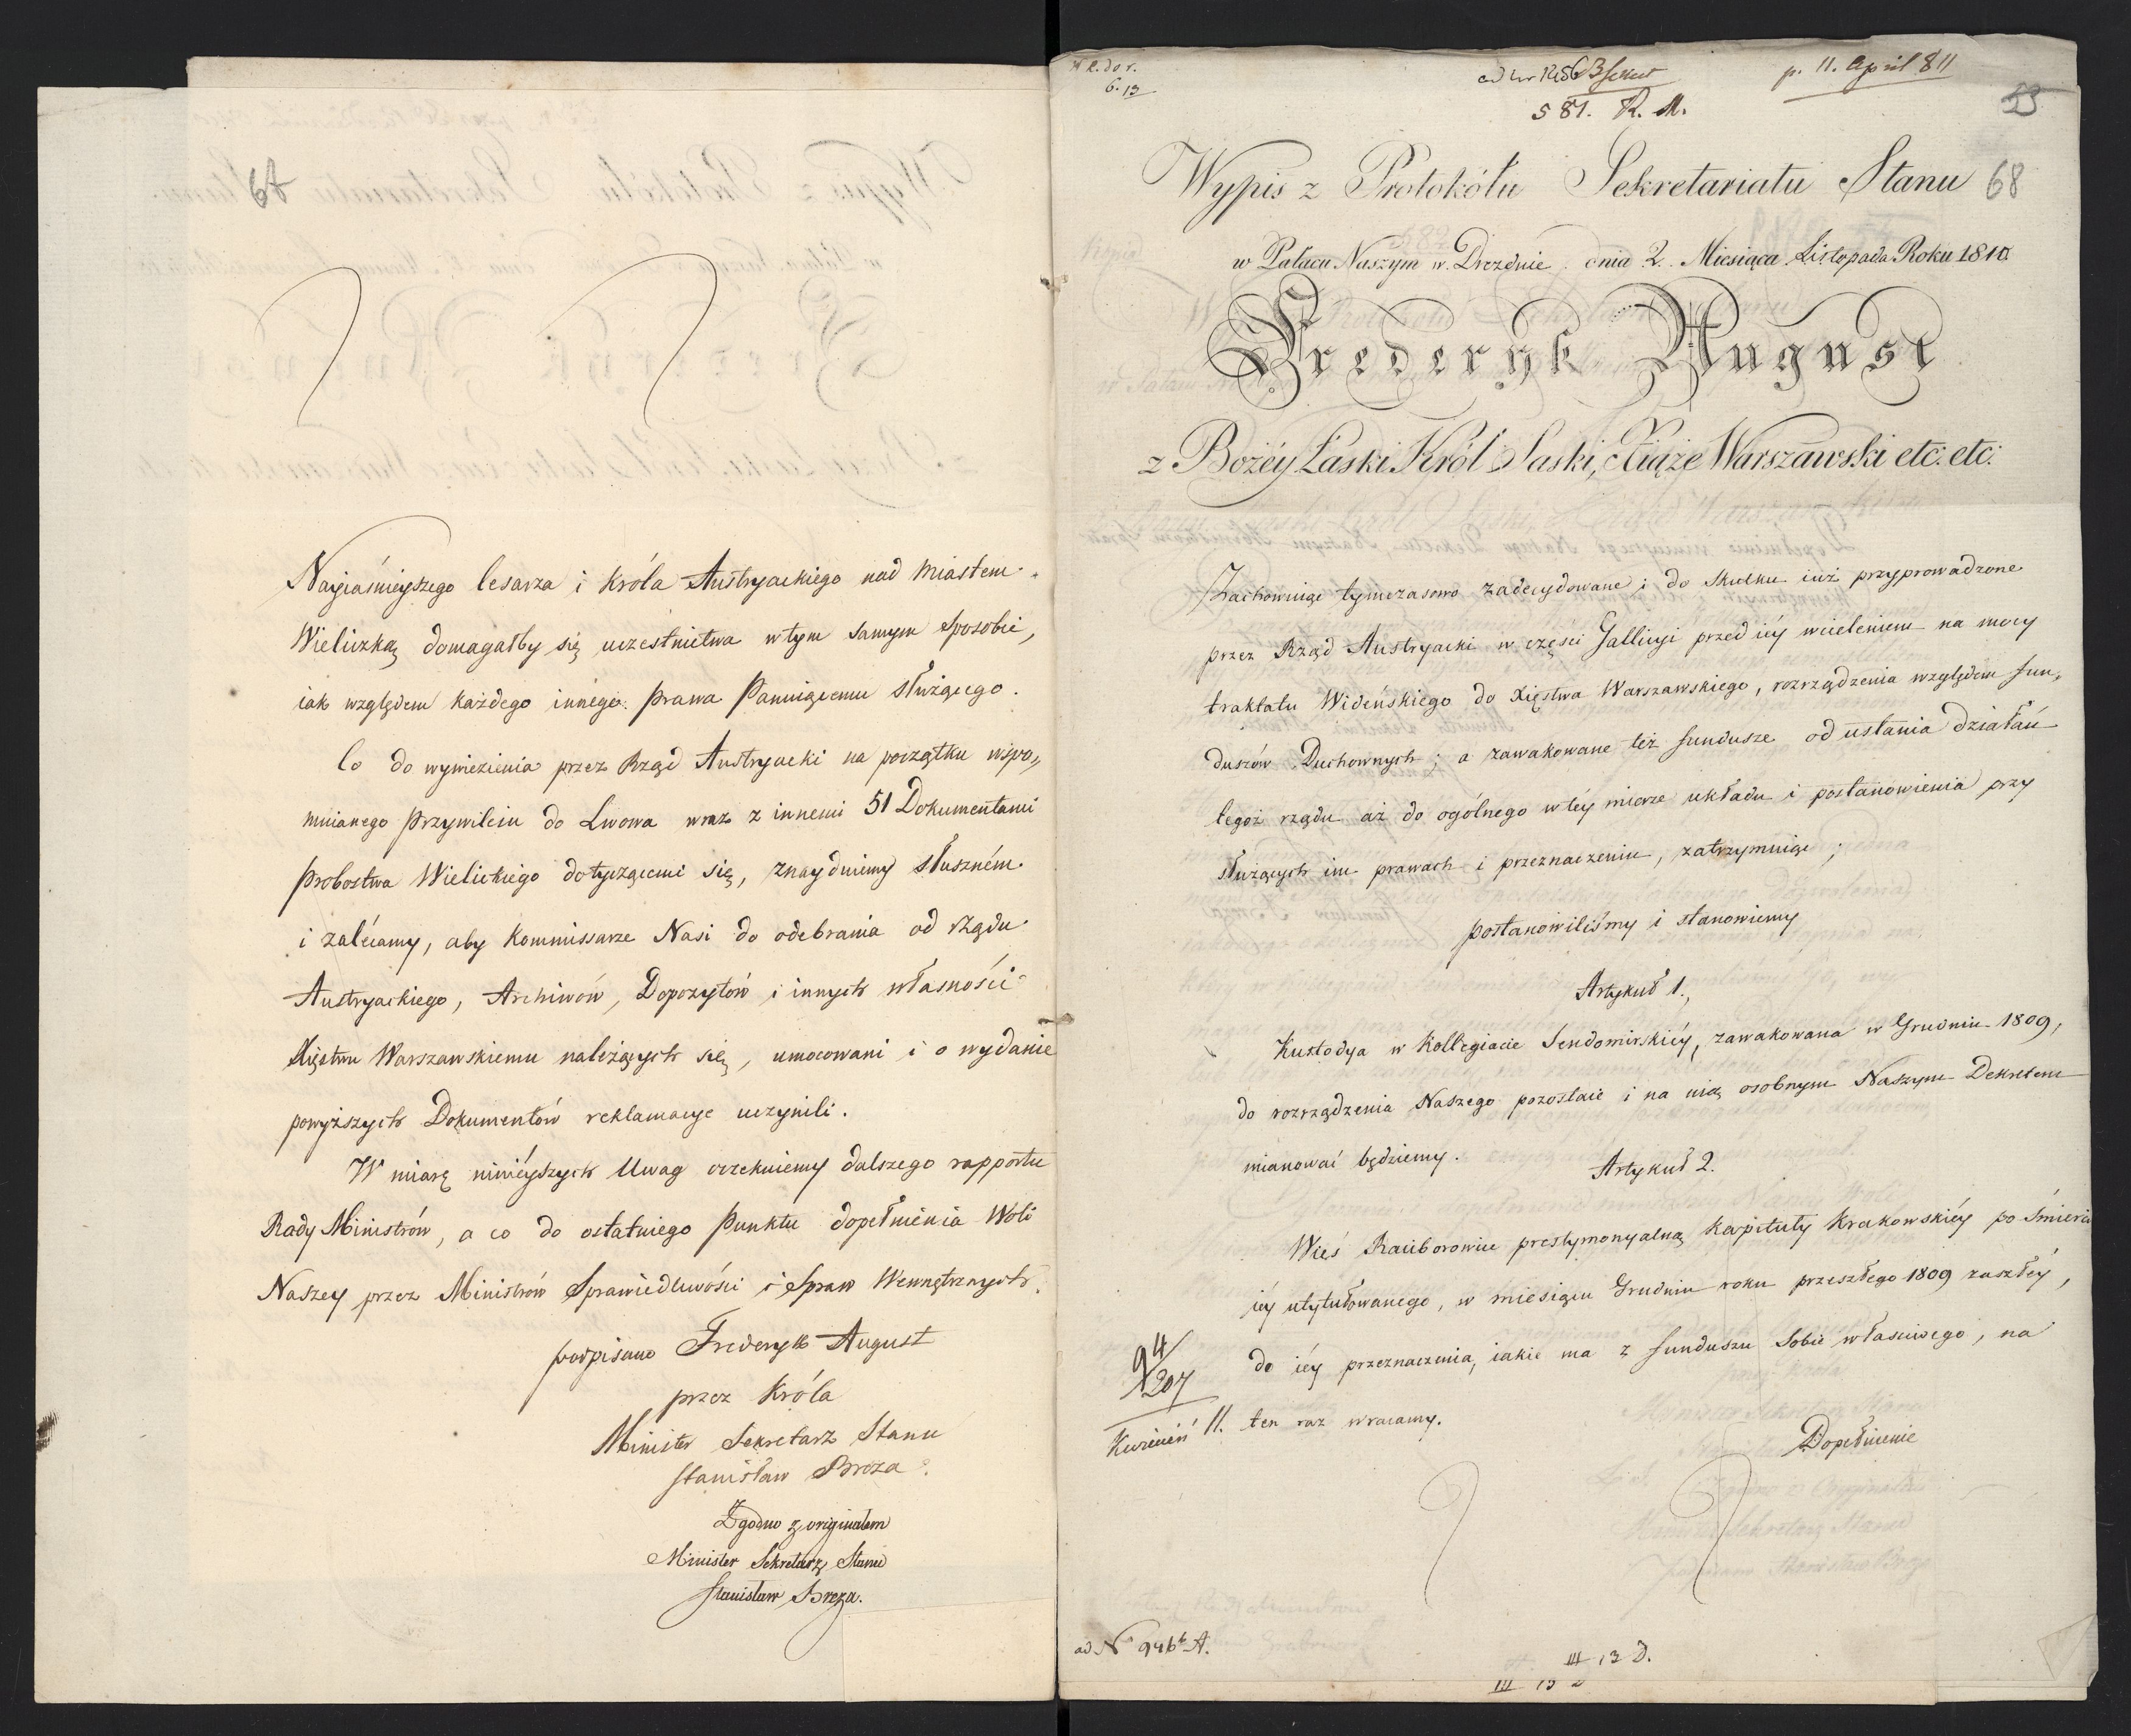 67
Nayiaśnieyszego Cesarza i Króla Austryackiego nad Miastem
Wieliczką domagałby się uczestnictwa w tym samym Sposobie,
iak względem każdego innego Prawa Panuiącemu służącego.
Co do wywiezienia przez Rząd Austryacki na początku wspo„
mnianego Przywileiu do Lwowa wraz z innemi 51 Dokumentami
Probostwa Wielickiego dotyczącemi się, znayduiemy słuszném
i zalécamy, aby Kommissarze Nasi do odebrania od Rządu
Austryackiego, Archiwów, Depozytów i innych własności
Xięstwu Warszawskiemu należących się, umocowani i o wydanie
powyższych Dokumentów reklamacye uczynili.
W miarę ninieyszych Uwag oczekuiemy dalszego rapportu
Rady Ministrów, a co do ostatniego Punktu dopełnienia Woli
Naszey przez Ministrów Sprawiedliwości i Spraw Wewnętrznych.
podpisano Frederyk August
przez Króla
Minister Sekretarz Stanu
Stanisław Breza.
Zgodno z originałem
Minister Sekretarz Stanu
Stanisław Breza.
6. 13
p. 11. April 811
581. R. M.
53
Wypis z Protokółu Sekretariatu Stanu
68
w Pałacu Naszym w Dreznie dnia 2. Miesiąca Listopada Roku 1810
Frederyk August
z Bożéy Łaski Król Saski, Xiąże Warszawski etc: etc:
Zachowuiąc tymczasowo zadecydowane i do skutku iuż przyprowadzone
przez Rząd Austryacki w części Gallicyi przed iéy wcieleniem na mocy
traktatu Wideńskiego do Xięstwa Warszawskiego, rozrządzenia względem fun„
duszów Duchownych; a zawakowane też fundusze od ustania działań
tegoż rządu aż do ogólnego w téy mierze układu i postanowienia przy
służących im prawach i przeznaczeniu, zatrzymuiąc;
postanowiliśmy i stanowiemy
Artykuł 1.
Kustodya w Kollegiacie Sendomirskiéy, zawakowana w Grudniu 1809,
do rozrządzenia Naszego pozostaie i na nią osobnym Naszym Dekretem
mianować będziemy.
Artykuł 2.
Wieś Raciborowice prestymonyalną Kapituły Krakowskiéy po śmierci
iéy utytułowanego, w miesiącu Grudniu roku przeszłego 1809 zaszłéy,
do iéy przeznaczenia, iakie ma z funduszu Sobie właściwego, na
ten raz wracamy.
94/207
Kwiecień 11.
Dopełnienie
ad N 946 A.
III 13 d.
III 13 d